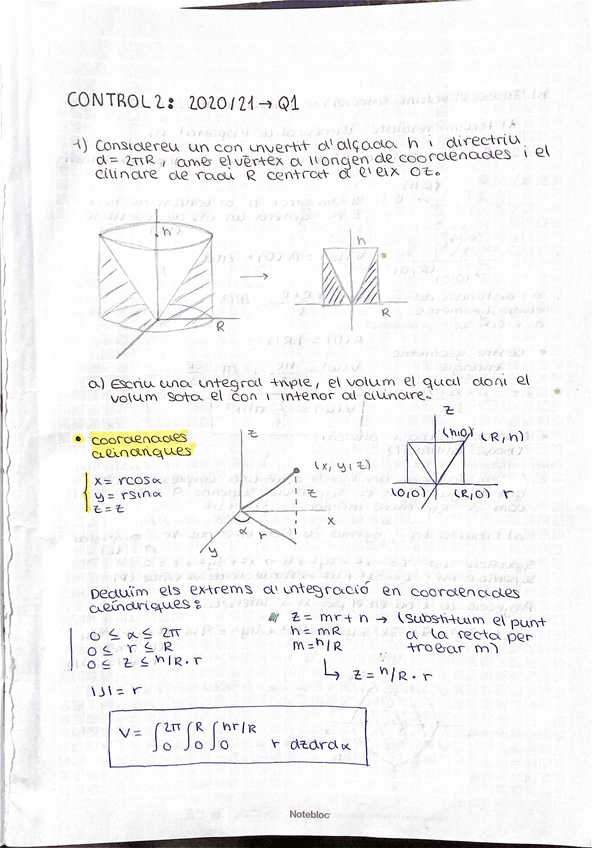 CONTROL 2: 2020/21 → Q1
1) Considereu un con invertit d'alçada h i directriu
d = 2πR, amb el vèrtex a l'origen de coordenades i el
cilindre de radi R centrat a l'eix OZ.
h
h
→
R
R
a) Escriu una integral triple, el volum el qual doni el
volum sota el con i interior al cilindre.
• coordenades
cilíndriques
x = r cosα
y = r sinα
z = z
z
(x, y, z)
z
x
α
r
y
z
(h,0)
(R, h)
(0,0)
(R,0)
r
Deduïm els extrems d'integració en coordenades
cilíndriques:
0 ≤ α ≤ 2π
0 ≤ r ≤ R
0 ≤ z ≤ h/R · r
z = mr + n → (Substituïm el punt
h = mR
a la recta per
m = h/R
trobar m)
↳ z = h/R · r
|J| = r
V = ∫₀^2π ∫₀^R ∫₀^hr/R r dzdrdα
Notebloc